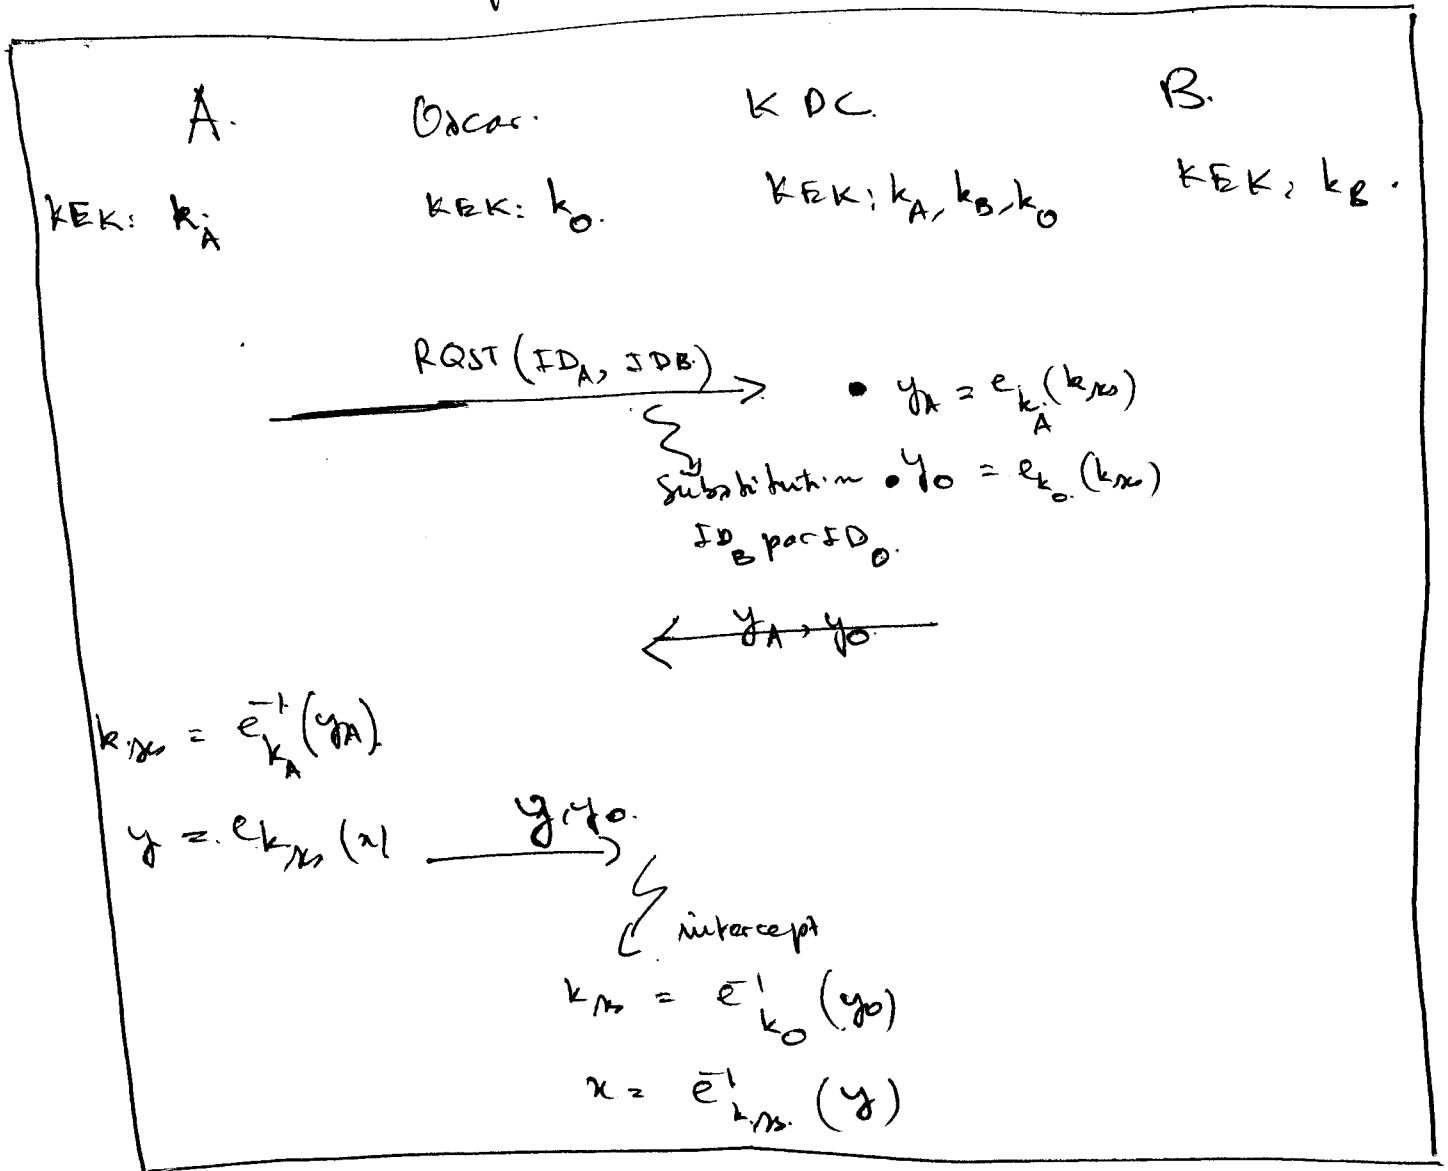 A. Oscar. KDC. B.
KEK: k_A KEK: k_O. KEK: k_A, k_B, k_O KEK: k_B.
RQST (ID_A, IDB.)
• y_A = e_{k_A}(k_ses)
Substitution • y_O = e_{k_O}(k_ses)
ID_B par ID_O.
y_A, y_O
k_ses = e^{-1}_{k_A}(y_A)
y = e_{k_ses}(x) y, y_O.
intercept
k_ses = e^{-1}_{k_O}(y_O)
x = e^{-1}_{k_ses}(y)